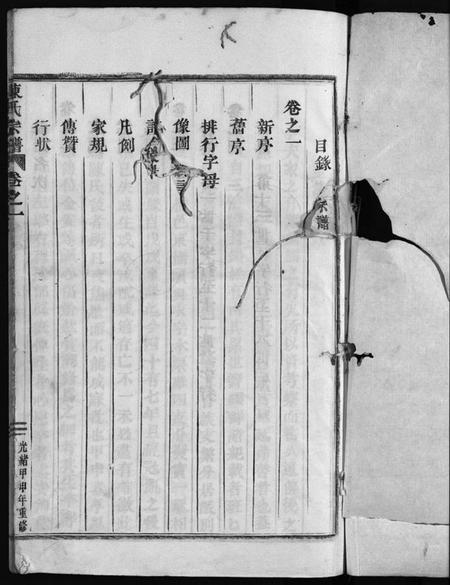 目錄
宗譜
卷之一
新序
舊序
排行字母
像圖
凡例
家規
傳贊
行狀
陳氏宗譜
卷之一
光緒甲申年重修